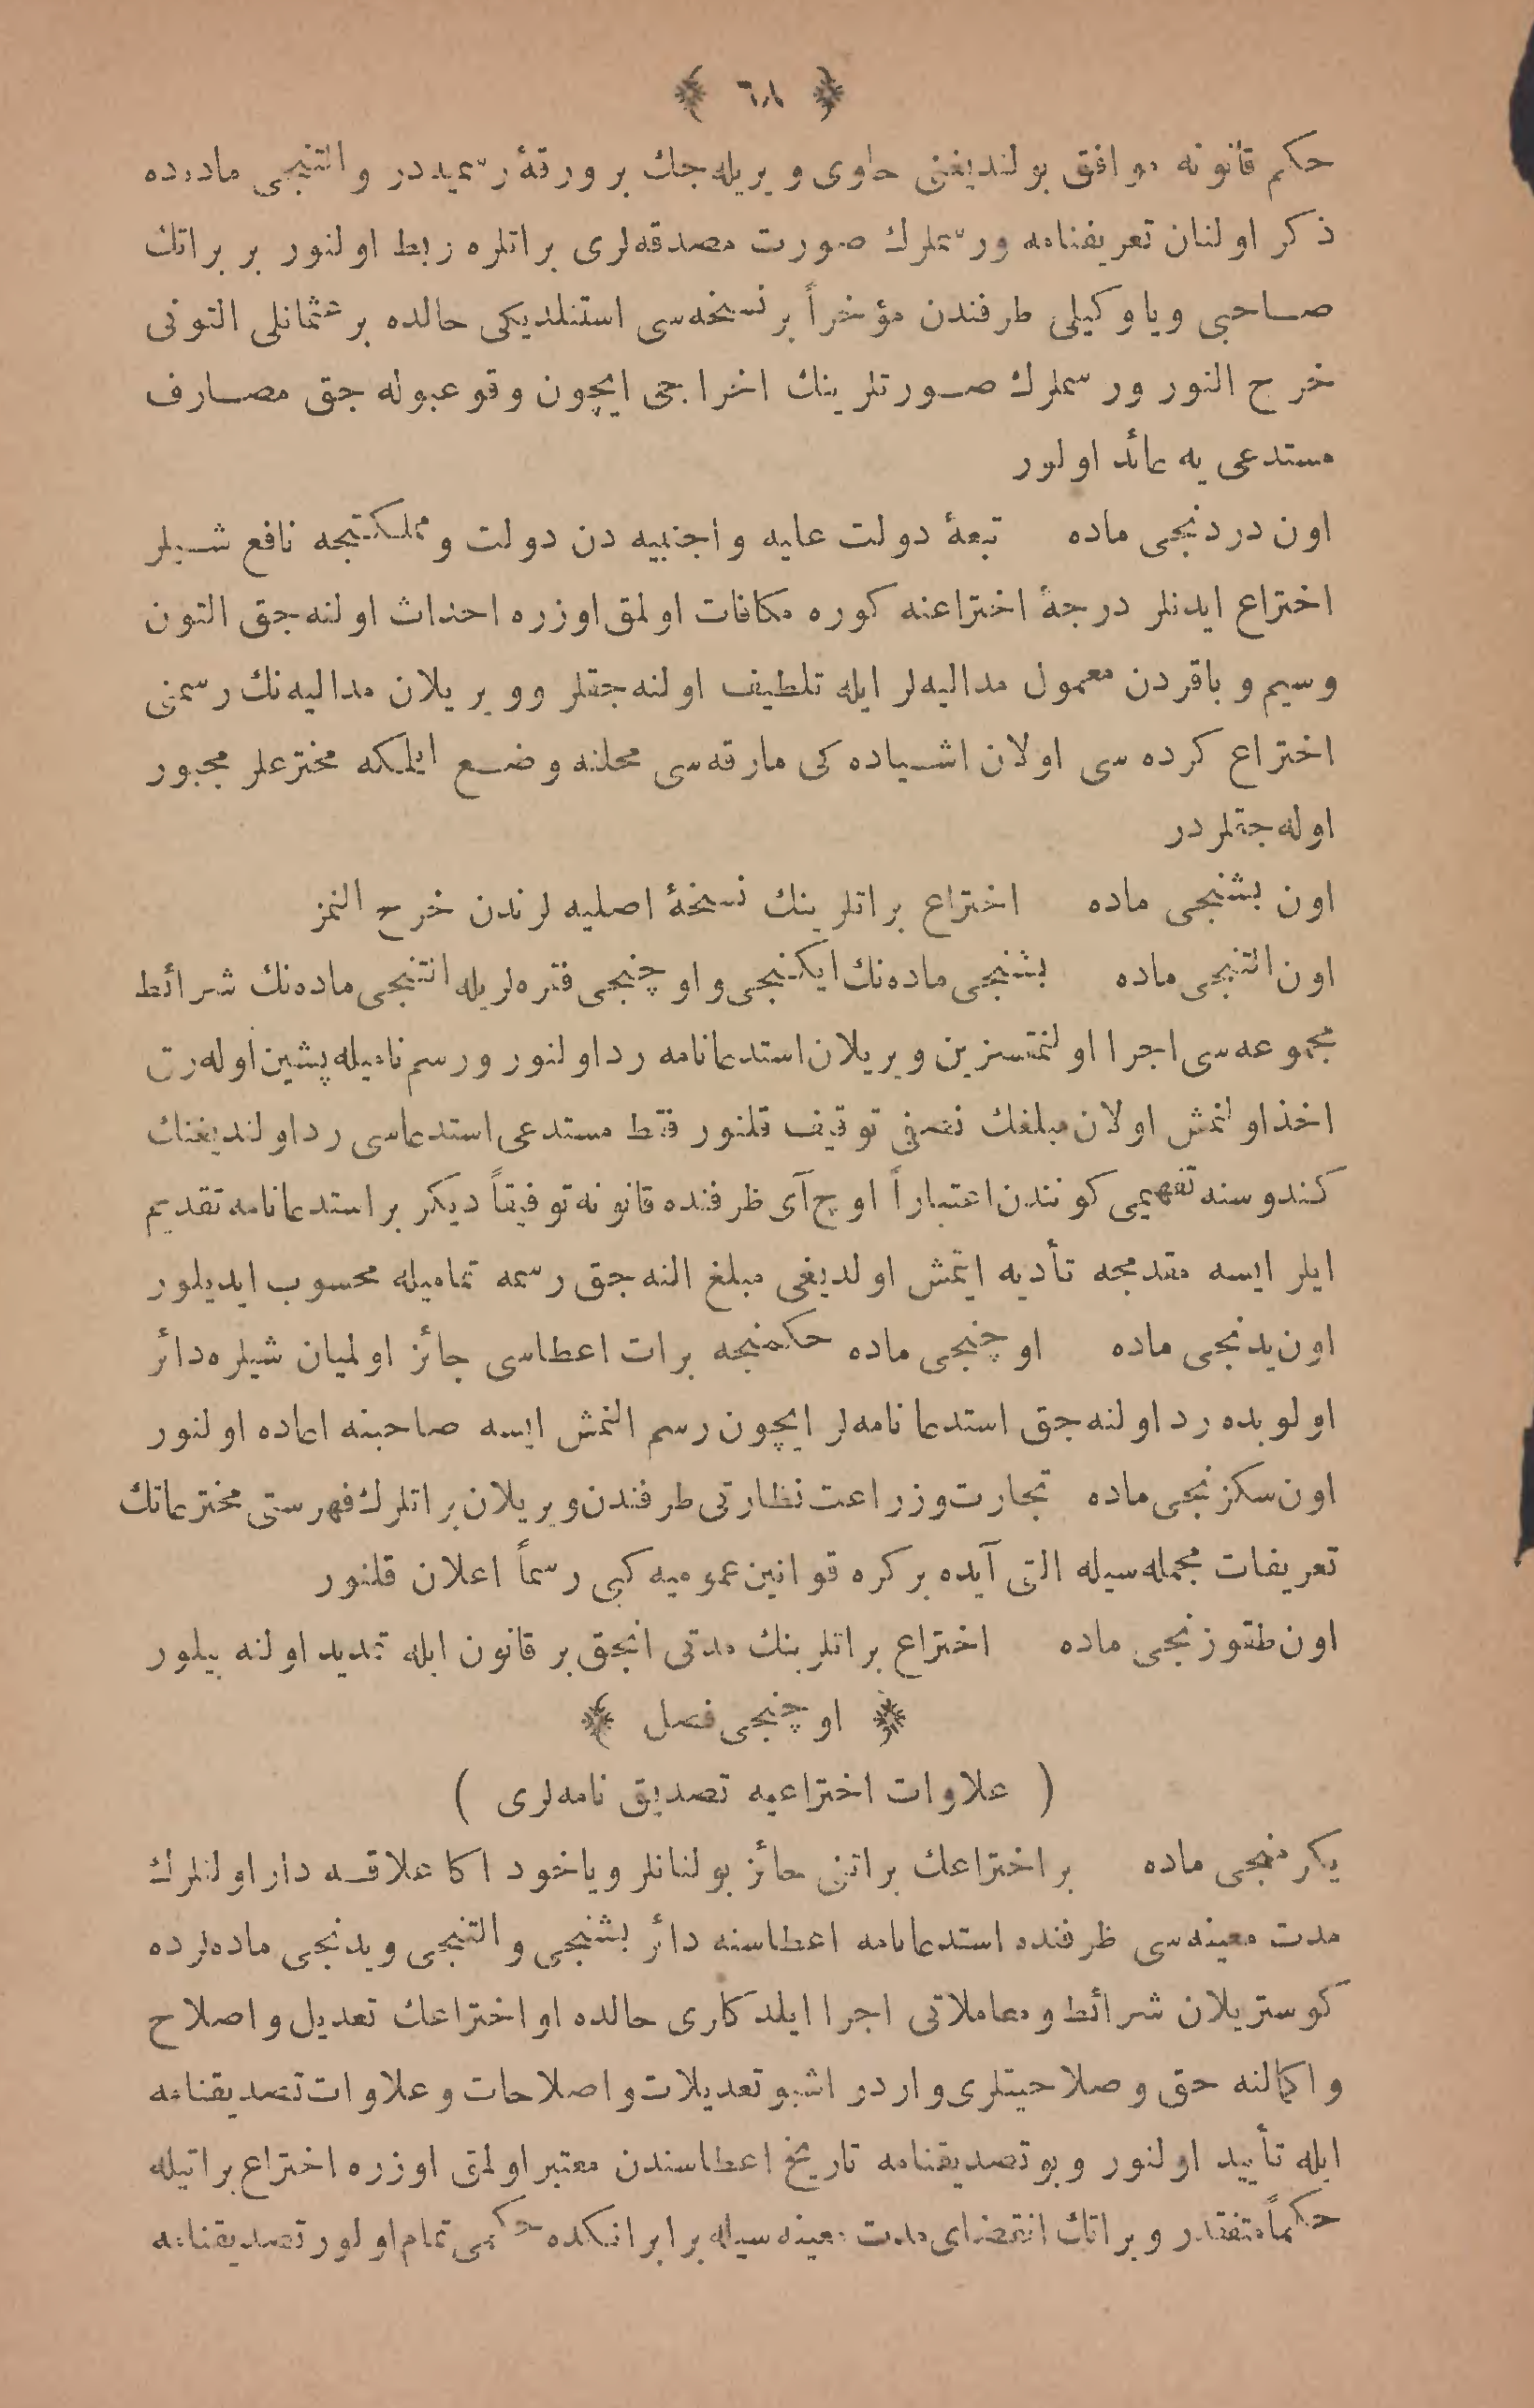 ﴿ ٦٨ ﴾
حكم قانونه موافق بولنديغنى حاوى ويريله‌جك بر ورقۀ رسميه‌در والتنجى ماده‌ده
ذكر اولنان تعريفنامه ورسملرك صورت مصدقه‌لرى براتلره ربط اولنور بر براتك
صاحبى وياوكيلى طرفندن مؤخراً بر نسخه‌سى استنلديكى حالده بر عثمانلى التونى
خرج النور ورسملرك صورتلرينك اخراجى ايچون وقوعبوله جق مصارف
مستدعى يه عائد اولور
اون دردنجى ماده تبعۀ دولت عليه واجنبيه دن دولت ومملكتجه نافع شيلر
اختراع ايدنلر درجۀ اختراعنه كوره مكافات اولمق اوزره احداث اولنه‌جق التون
وسيم وباقردن معمول مداليه‌لر ايله تلطيف اولنه‌جقلر وويريلان مداليه‌نك رسمنى
اختراع كرده سى اولان اشياده كى مارقه‌سى محلنه وضع ايلمكه مخترعلر مجبور
اوله‌جقلردر
اون بشنجى ماده اختراع براتلرينك نسخۀ اصليه لرندن خرج النمز
اون التنجى ماده بشنجى ماده‌نك ايكنجى واوچنجى فقره‌لريله التنجى ماده‌نك شرائط
مجموعه‌سى اجرا اولنمقسزين ويريلان استدعانامه رد اولنور ورسم ناميله پشين اوله‌رق
اخذ اولنمش اولان مبلغك نصفى توقيف قلنور فقط مستدعى استدعاسى رد اولنديغنك
كندوسنه تفهيمى كونندن اعتباراً اوچ آى ظرفنده قانونه توفيقاً ديكر بر استدعانامه تقديم
ايلر ايسه مقدمجه تأديه ايتمش اولديغى مبلغ النه جق رسمه تماميله محسوب ايديلور
اون يدنجى ماده اوچنجى ماده حكمنجه برات اعطاسى جائز اولميان شيلره دائر
اولوبده رد اولنه جق استدعا نامه‌لر ايچون رسم النمش ايسه صاحبنه اعاده اولنور
اون سكزنجى ماده تجارت وزراعت نظارتى طرفندن ويريلان براتلرك فهرستى مخترعاتك
تعريفات مجمله‌سيله التى آيده بر كره قوانين عموميه كبى رسماً اعلان قلنور
اون طقوزنجى ماده اختراع براتلرينك مدتى انجق بر قانون ايله تمديد اولنه بيلور
﴿ اوچنجى فصل ﴾
( علاوات اختراعيه تصديق نامه‌لرى )
يكرمنجى ماده بر اختراعك براتنى حائز بولنانلر وياخود اكا علاقه دار اولنلرك
مدت معينه‌سى ظرفنده استدعانامه اعطاسنه دائر بشنجى والتنجى ويدنجى ماده‌لرده
كوستريلان شرائط ومعاملاتى اجرا ايلدكارى حالده او اختراعك تعديل واصلاح
واكمالنه حق وصلاحيتلرى واردر اشبو تعديلات واصلاحات وعلاوات تصديقنامه
ايله تأييد اولنور وبو تصديقنامه تاريخ اعطاسندن معتبر اولمق اوزره اختراع براتيله
حكماً متفقدر وبراتك انقضاى مدت معينه سيله برابر انكده حكمى تمام اولور تصديقنامه